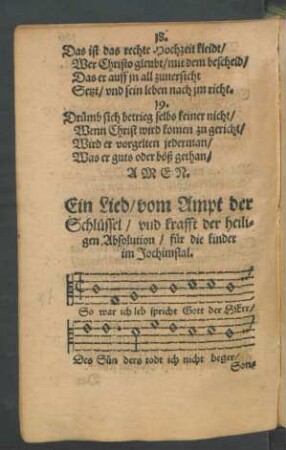 18.
Das ist das rechte Hochzeit kleidt/
Wer Christo gleubt/mit dem bescheid/
Das er auff jn all zuuersicht
Setzt/ vnd sein leben nach jm richt.
19.
Drümb sich betrieg selbs keiner nicht/
Wenn Christ wird komen zu gericht/
Wird er vorgelten jederman/
Was er guts oder böß gethan/
A M E N.
Ein Lied/vom Ampt der
Schlüssel/ vnd krafft der heili-
gen Absolution/ für die kinder
im Jochimstal.
So war ich leb spricht Gott der HErr/
Des Sün ders todt ich nicht beger/
Sons